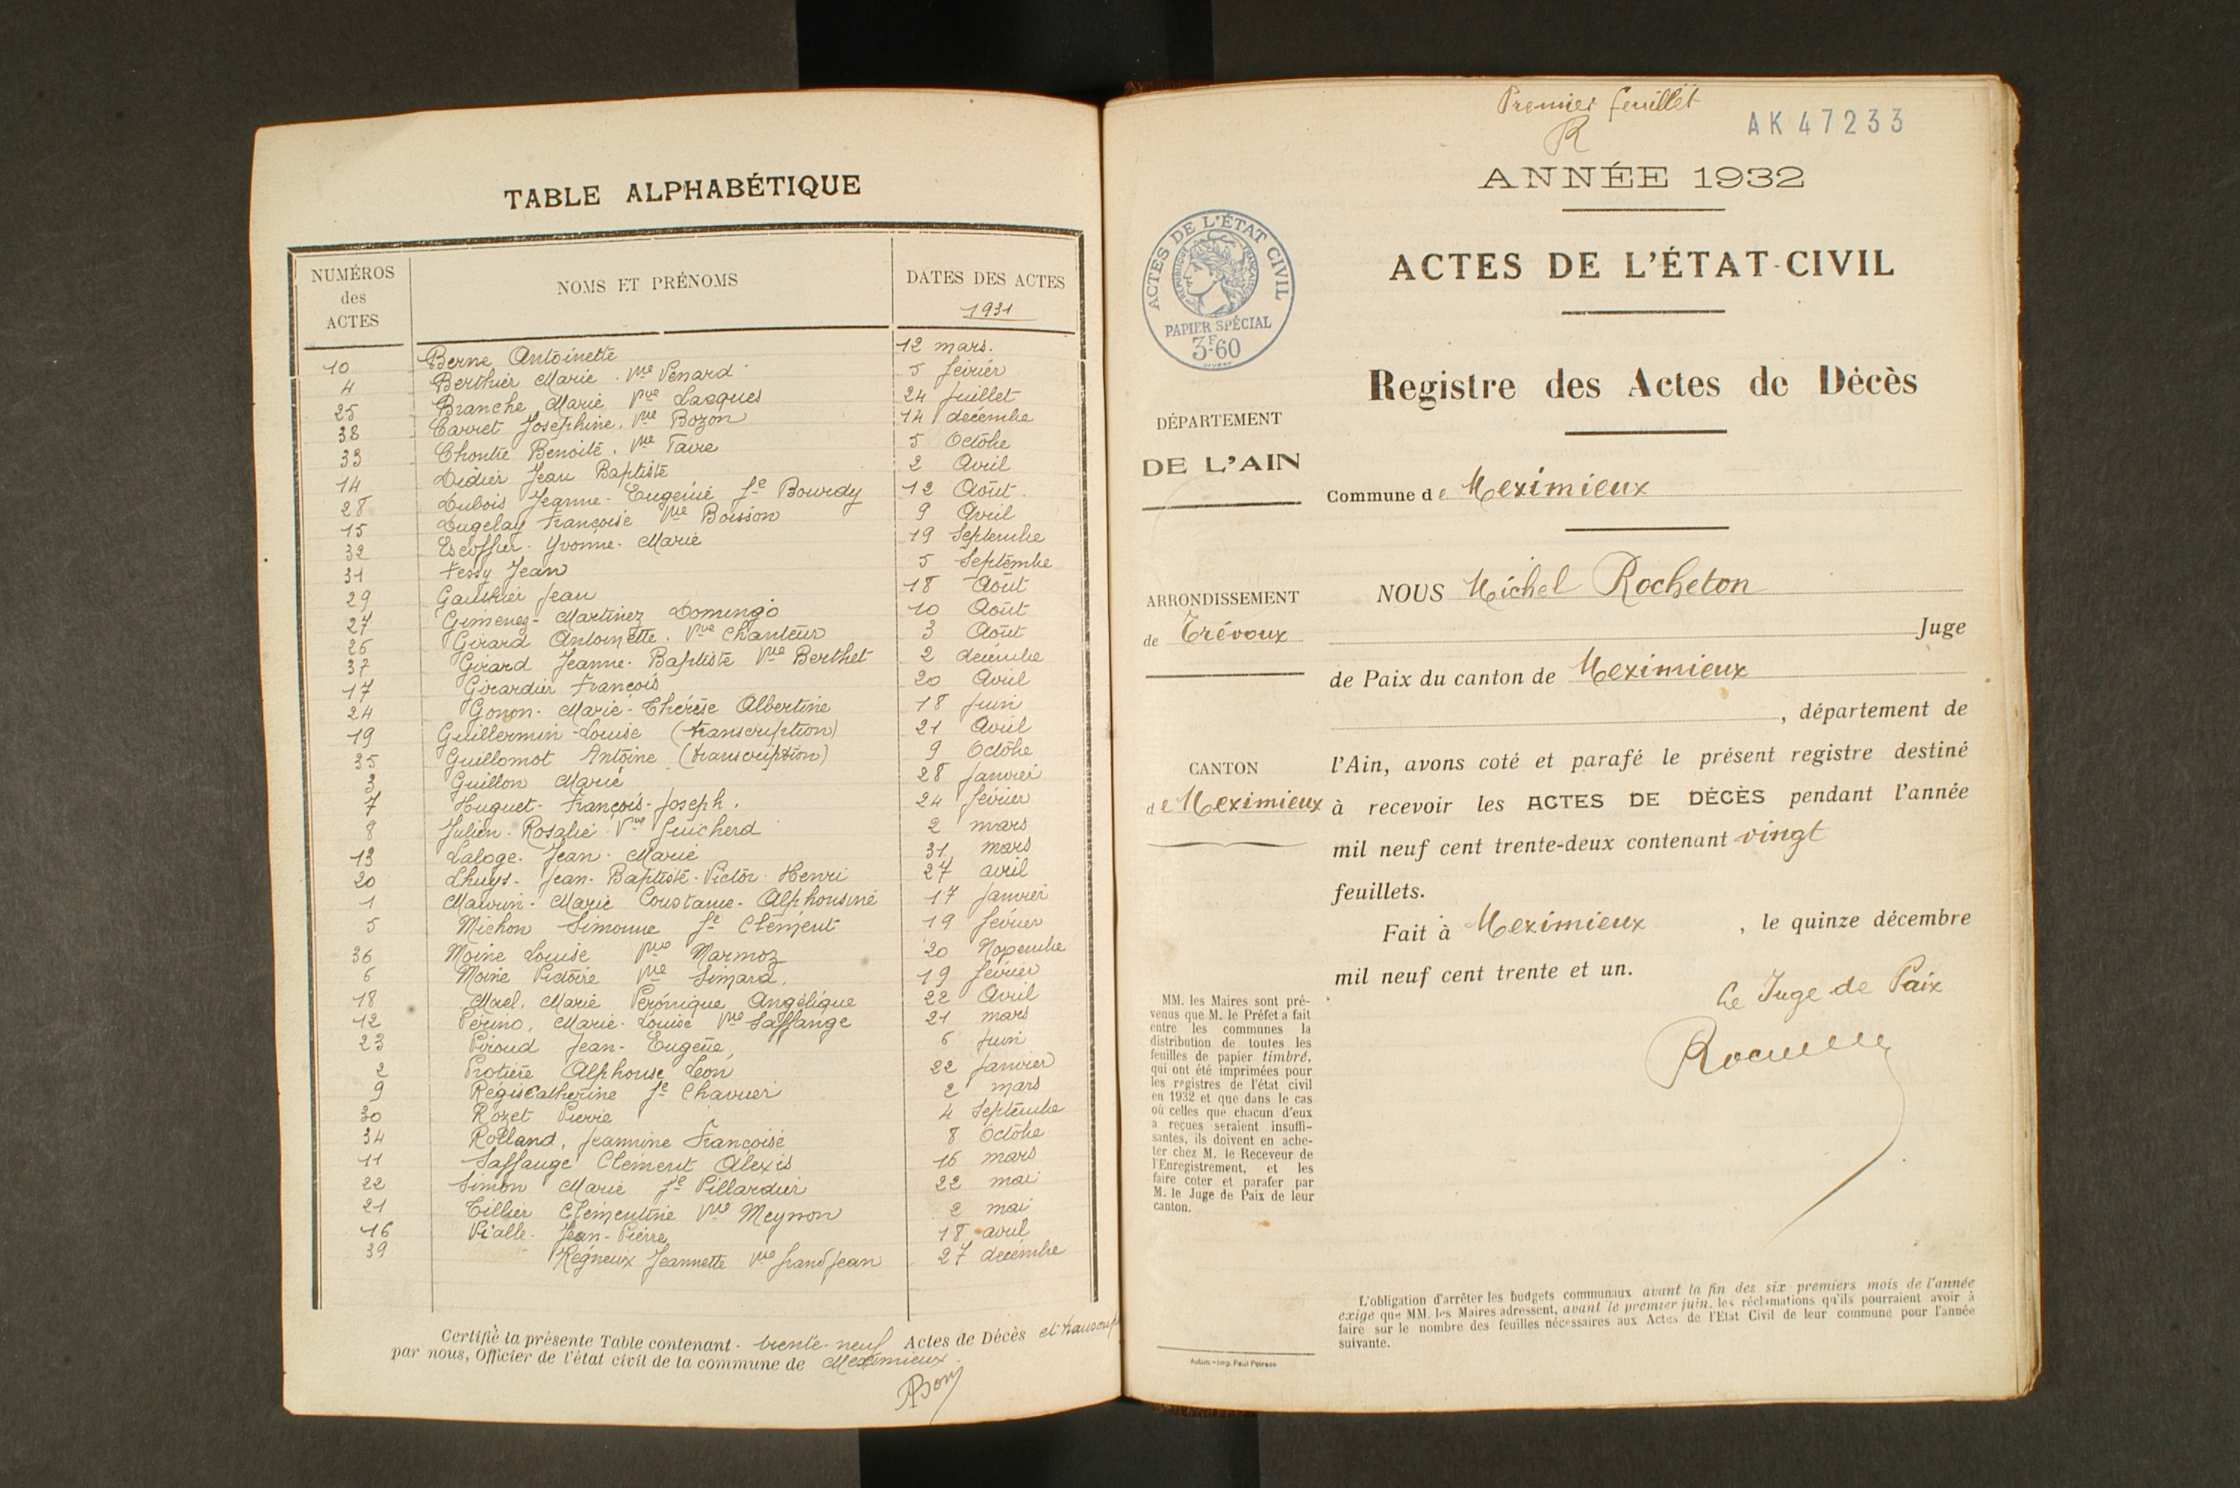 TABLE ALPHABÉTIQUE
NUMÉROS des ACTES
NOMS ET PRÉNOMS
DATES DES ACTES
1931
10 Berne Antoinette 12 mars.
4 Berthier Marie. Vve Venard 5 février
25 Branche Marie Vve Lacques 24 juillet
38 Carret Joséphine. Vve Bozon 14 décembre
33 Benoite. Vve Favre 5 Octobre
14 Didier Jean Baptiste 2 Avril
28 Dubois Jeanne-Eugénie fe Bourdy 12 Août.
15 Dugelay Françoise Vve Boisson 9 Avril
32 Escoffier. Yvonne. Marie 19 Septembre
31 Fessy Jean 5 Septembre
29 Gauthier Jean 18 Août
27 Gimenez-Martinez Domingo 10 Août
26 Girard Antoinette. Vve Chanteur 3 Août
37 Girard Jeanne. Baptiste Vve Berthet 2 décembre
17 Girardier François 20 Avril
24 Gonon. Marie-Thérèse Albertine 18 juin
19 Guillermin-Louise (transcription) 21 Avril
35 Guillomot Antoine (transcription) 9 Octobre
3 Guillon Marie 28 janvier
7 Huguet-François-Joseph. 24 février
8 Julien. Rosalie. Vve Guicherd 2 mars
13 Laloge. Jean. Marie 31 mars
20 Lhuys. Jean. Baptiste. Victor. Henri 27 avril
1 Maurin. Marie Constance. Alphonsine 17 janvier
5 Michon Simonne fe Clément 19 février
36 Moine Louise Vve Marmoz 20 Novembre
6 Moine Victoire Vve Simard. 19 février
18 Morel. Marie Véronique Angélique 22 Avril
12 Périno, Marie-Louise Vve Saffange 21 mars
23 Piroud Jean-Eugène, 6 juin
2 Protière Alphonse Léon 22 janvier
9 Régis Catherine fe Charrier 2 mars
30 Rozet Pierre 4 Septembre
34 Rolland, Jeannine Françoise 8 Octobre
11 Saffange Clément Alexis 16 mars
22 Simon Marie fe Pillardier 22 mai
21 Tillier Clémentine Vve Meynon 2 mai
16 Vialle. Jean-Pierre 18 avril
39 Régneux Jeannette Vve Grandjean 27 décembre
Certifié la présente Table contenant trente-neuf Actes de Décès et
par nous, Officier de l'état civil de la commune de Meximieux.
Premier feuillet
R
AK47233
ANNÉE 1932
ACTES DE L'ÉTAT CIVIL
RÉPUBLIQUE FRANÇAISE
PAPIER SPÉCIAL
3F60
ACTES DE L'ÉTAT-CIVIL
Registre des Actes de Décès
DÉPARTEMENT
DE L'AIN
Commune de Meximieux
ARRONDISSEMENT
de Trévoux
CANTON
de Meximieux
NOUS Michel Rocheton
Juge
de Paix du canton de Meximieux
, département de
l'Ain, avons coté et parafé le présent registre destiné
à recevoir les ACTES DE DÉCÈS pendant l'année
mil neuf cent trente-deux contenant vingt
feuillets.
Fait à Meximieux, le quinze décembre
mil neuf cent trente et un.
Le Juge de Paix
MM. les Maires sont pré-
venus que M. le Préfet a fait
entre les communes la
distribution de toutes les
feuilles de papier timbré,
qui ont été imprimées pour
les registres de l'état civil
en 1932 et que dans le cas
où celles que chacun d'eux
a reçues seraient insuffi-
santes, ils doivent en ache-
ter chez M. le Receveur de
l'Enregistrement, et les
faire coter et parafer par
M. le Juge de Paix de leur
canton.
L'obligation d'arrêter les budgets communaux avant la fin des six premiers mois de l'année
exige que MM. les Maires adressent, avant le premier juin, les réclamations qu'ils pourraient avoir à
faire sur le nombre des feuilles nécessaires aux Actes de l'Etat Civil de leur commune pour l'année
suivante.